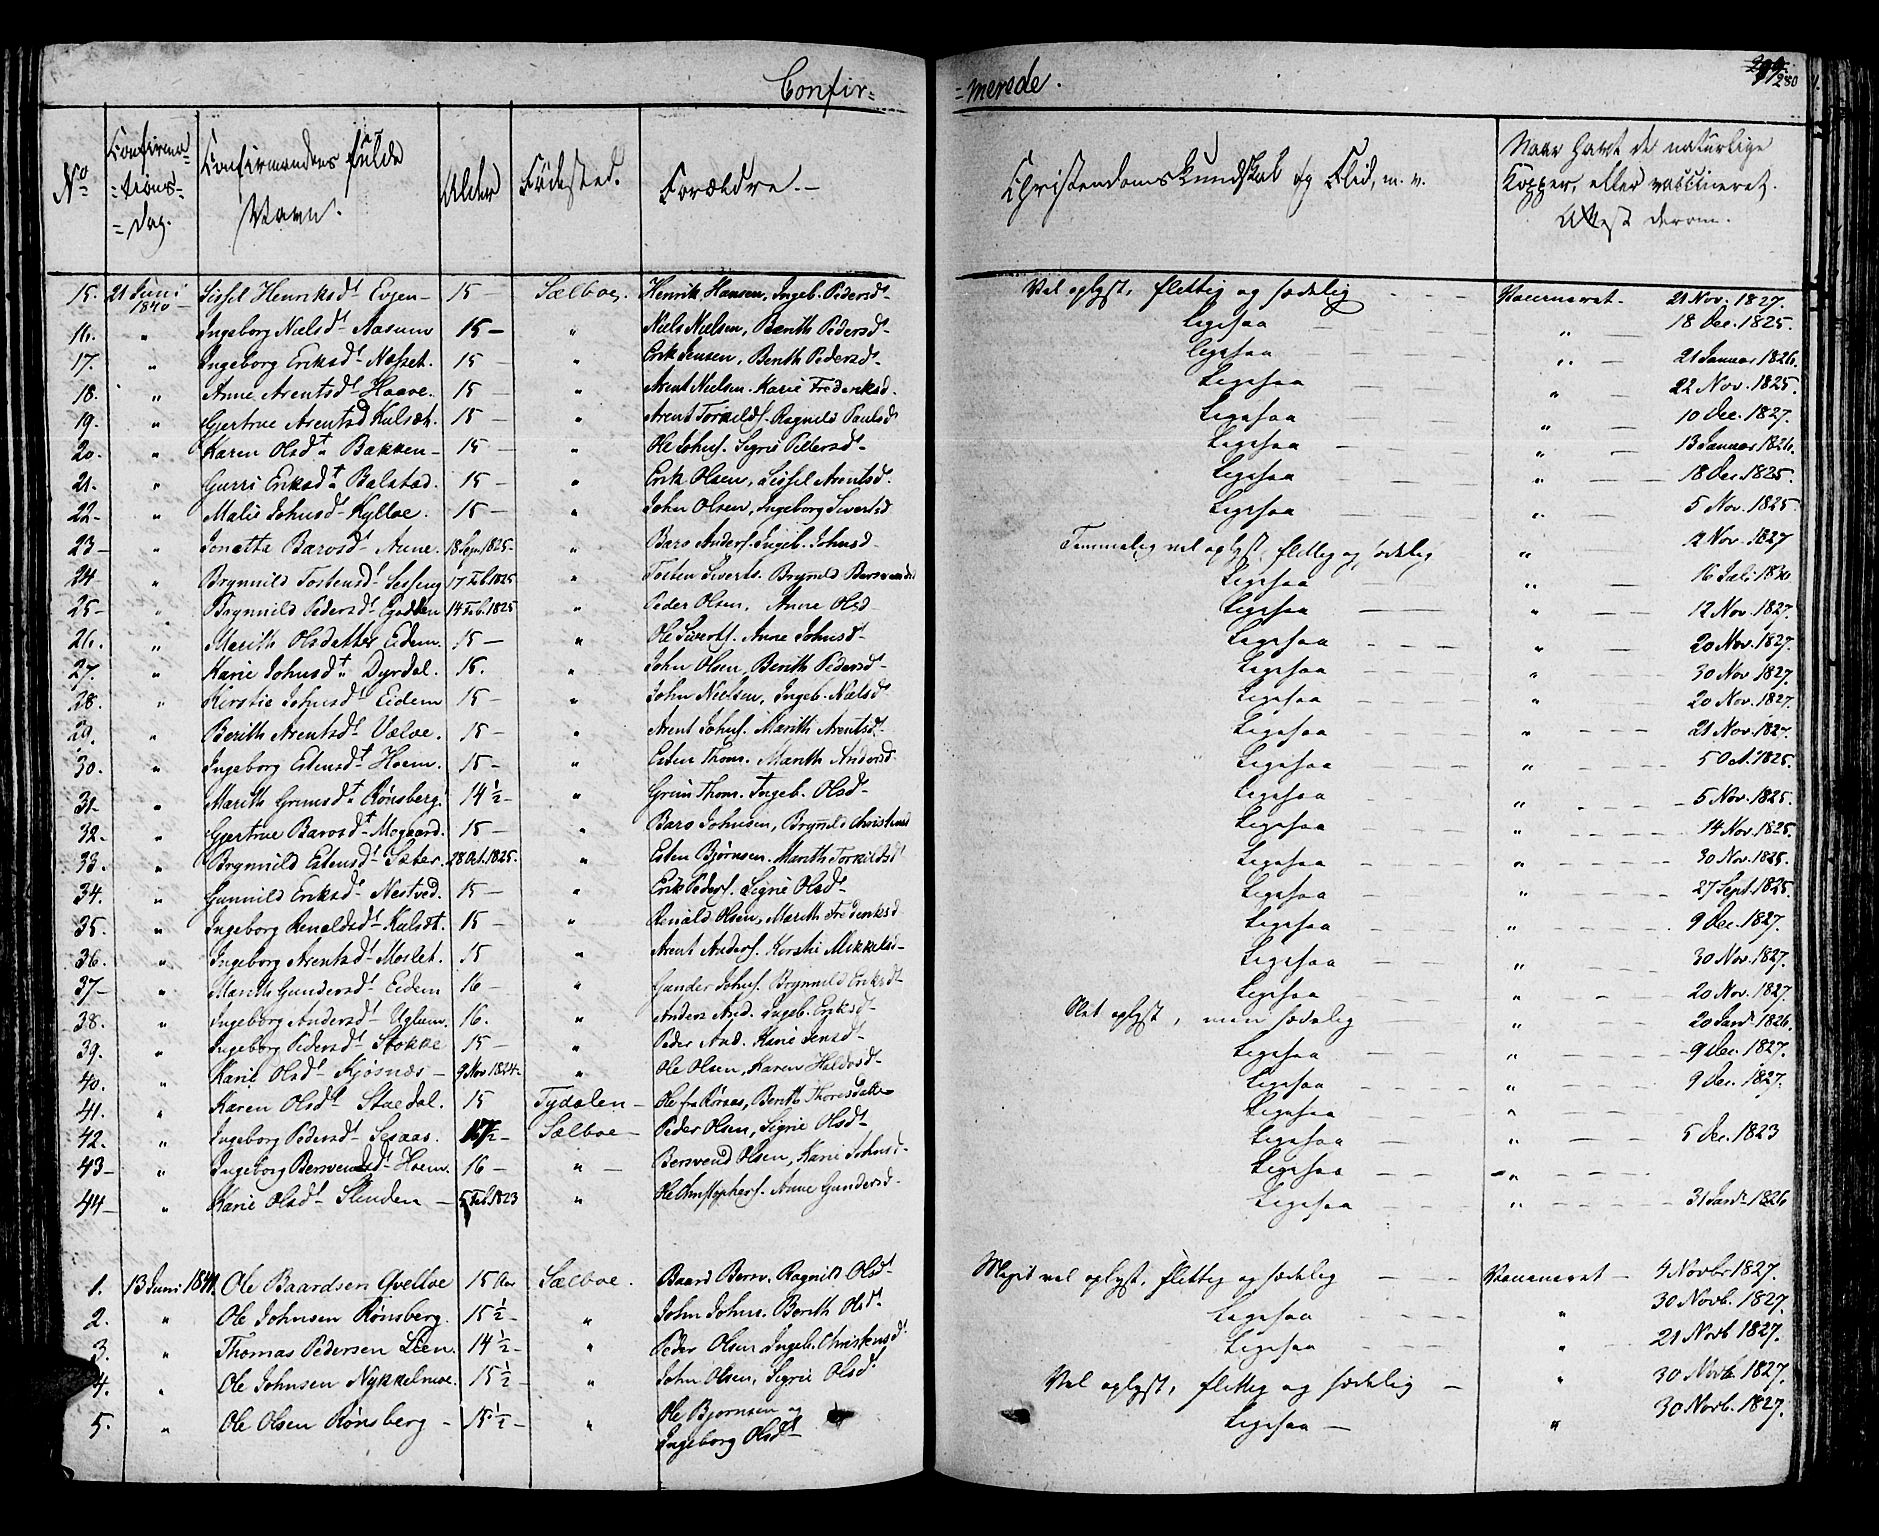 Confir-
-merede.
280
No
Confirma-
-tions-
-Dag.
Confirmandens fulde
Navn.
Alder
Fødested.
Forældre.-
Christendomskundskab og Flid, m. v.
Naar havt de naturlige
Kopper, eller vaccineret.
Attest derom.
15. 21 Juni 1840 Sissel Henriksdt Evjen- 15 - Sælboe. Henrik Hansen, Ingeb. Pedersdt- Vel oplyst, flittig og sædelig - - - Vaccineret- 21 Nov. 1827.
16. " Ingeborg Nielsdt Aasum 15- " Niels Nielsen, Berith Pedersdt- Ligesaa " 18 Dec. 1825.
17. " Ingeborg Eriksdt Næsset. 15 - " Erik Jensen, Berith Pedersdt- Ligesaa " 21 Januar 1826.
18. " Anne Arentsdt Haave. 15 - " Arent Nielsen. Karie Frederiksd. Ligesaa " 22 Nov. 1825.
19. " Gjertrue Arentsd Kulsæt. 15 - " Arent Torkelds. Ragnild Paulsdt Ligesaa " 10 Dec. 1827.
20. " Karen Olsdt Bakken- 15 - " Ole Johns. Sigrie Pettersdt- Ligesaa " 13 Januar 1826.
21. " Gurri Eriksdt Balstad. 15 - " Erik Olsen, Sissel Arentsdt. Ligesaa " 18 Dec 1825.
22- " Malie Johnsdt Kylloe. 15 - " John Olsen, Ingeborg Sivertsd Ligesaa " 5 Nov. 1825
23- " Jonetta Barosdt Aune. 18 Sepr 1825- " Baro Anders. Ingeb. Johnsd Temmelig vel oplyst, flittig og sædelig " 2 Nov. 1827
24- " Brynnild Tostensdt- 17 Feb. 1825 " Tosten Siverts. Brynnild Ligesaa " 16 Juli 1830
25- " Brynnild Pedersdt 14 Feb. 1825 " Peder Olsen, Anne Olsd Ligesaa " 12 Nov. 1827.
26. " Marith Olsdatter Eidem. 15 - " Ole Siverts. Anne Johnsdt- Ligesaa " 20 Nov. 1827.
27. " Karie Johnsdt Dyrdal. 15. " John Olsen, Berith Pedersdt- Ligesaa " 30 Nov 1827.
28. " Kirstie Johnsdt Eidem 15 - " John Nielsen, Ingeb. Nielsdt Ligesaa " 20 Nov. 1827.
29. " Berith Arentsdt Vælve. 15 - " Arent Johns. Marith Arentsdt- Ligesaa " 21 Nov. 1827.
30. " Ingeborg Estensdt Hoem. 15 - " Esten Thom. Marith Andersd Ligesaa " 5 Oct. 1825.
31- " Marith Grimsdt Rønsberg. 14 ½ - " Grim Thom. Ingeb. Olsdt- Ligesaa " 5 Nov. 1825.
32. " Gjertrue Barosdt- Mogaard. 15 - " Baro Johnsen, Brynnild Christensd Ligesaa " 14 Nov. 1825.
33. " Brynnild Estensdt- Sæter. 28 Oct. 1825. " Esten Bjørnsen. Marith Torkildsdt Ligesaa " 30 Nov. 1825.
34. " Gunnild Eriksdt- Nestved. 15 - " Erik Peders. Sigrie Olsdt- Ligesaa " 27 Sept 1825.
35. " Ingeborg Renaldsdt- Kulsæt. 15 - " Renald Olsen, Marith Frederiksd Ligesaa " 9 Dec. 1827.
36. " Ingeborg Arentsdt- Moslet. 15 " Arent Anders. Kirstie Mikkelsd- Ligesaa " 30 Nov. 1827.
37- " Marith Gundersdt- Eidem 16 - " Gunder Johns. Brynnild Eriksdt- Ligesaa " 20 Nov. 1827
38. " Ingeborg Andersdt- Uglum. 16. " Anders And. Ingeb. Eriksdt- Slet oplyst, men sædelig " 20 Janr 1826.
39. " Ingeborg Pedersdt- Stokke 15 - " Peder And. Karie Jensdt- Ligesaa " 9 Dec. 1827.
40. " Karie Olsdt Kjøsnæs - 9 Nov 1824- " Ole Olsen, Karen Haldosdt- Ligesaa " 9 Dec. 1827.
41. " Karen Olsdt Stuedal. 15 Tydalen - Ole fra Røraas, Berith Thoresdatter Ligesaa "
42. " Ingeborg Pedersdt- Sesaas. 17½ - Sælboe - Peder Olsen, Sigrie Olsdt- Ligesaa " 5 Dec. 1823
43- " Ingeborg Bersvendsdt- Hoem. 16 - " Bersvend Olsen, Karie Johnsd- Ligesaa "
44- " Karie Olsdt- Slinden - 5 Feb. 1823 " Ole Christophers. Anne Gundersd- Ligesaa " 31 Janr 1826
1. 13 Juni 1841. Ole Baardsen Qvelloe 15 Aar Sælboe. Baard Bersv. Ragnild Olsdt- Meget vel oplyst, flittig og sædelig - - Vaccineret - 4 Novbr 1827.
2. " Ole Johnsen Rønsberg. 15 ½ - " John Johns. Berith Olsdt. Ligesaa " 30 Novb. 1827.
3. " Thomas Pedersen Lien. 14 ½ - " Peder Olsen Ingeb. Christensdt. Ligesaa " 21 Novb 1827.
4. " Ole Johnsen Nykkelmoe. 15 ½ - " John Olsen, Sigrie Olsdt. Vel oplyst, flittig og sædelig - " 30 Novb 1827.
5. " Ole Olsen Rønsberg - 15 ½ - " Ole Bjørnsen og Ligesaa - " 30 Novb. 1827.
Ingeborg Olsdt-